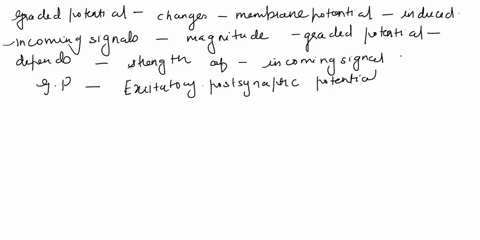 graded potential - changes - membrane potential - induced.
- incoming signals - magnitude - graded potential -
depends - strength of - incoming signal.
G.P - Exitatory postsynaptic potential